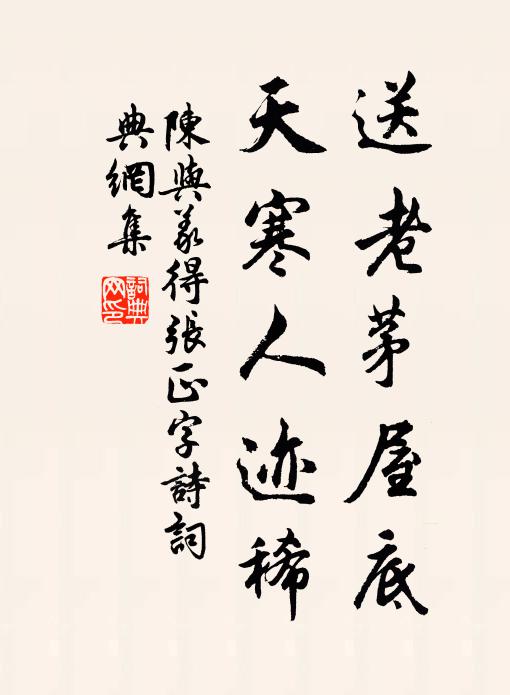 送老茅屋底
天寒人迹稀
陳與義得張正字詩詞
典網集
詞典
网印